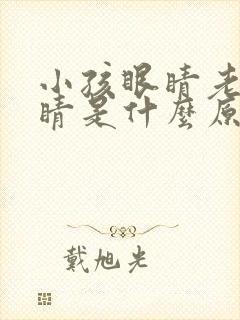 小孩眼睛老
睛是什麼原
戴旭光